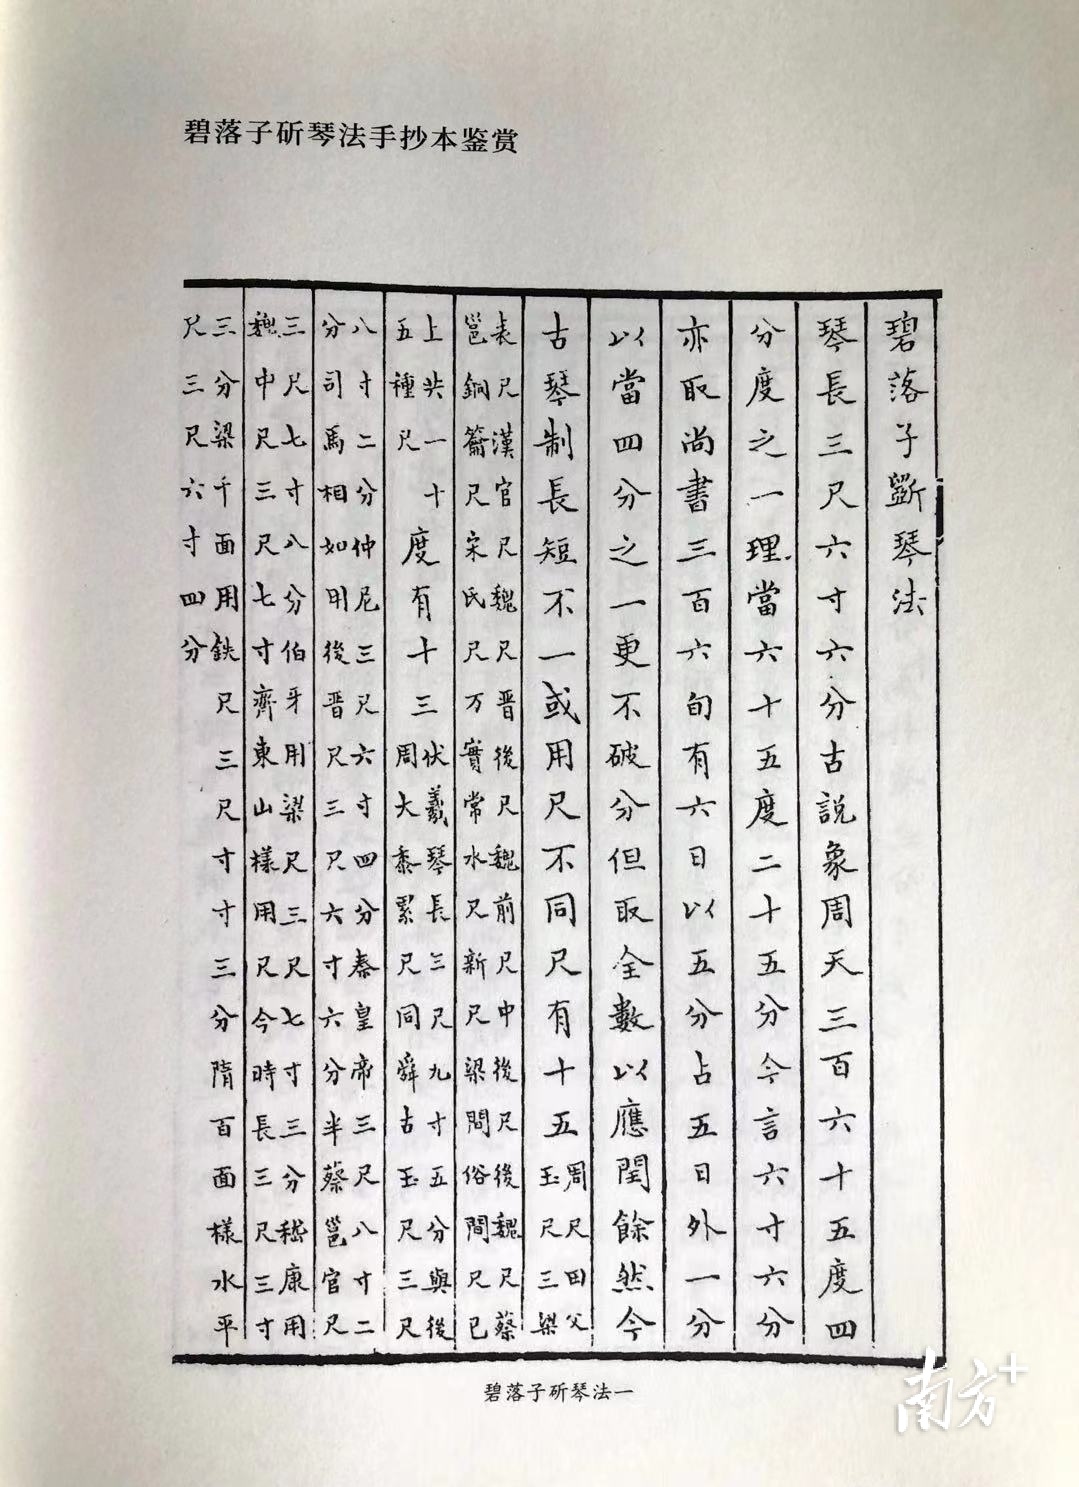 碧落子斫琴法手抄本鉴赏
碧落子斲琴法
琴長三尺六寸六分古説象周天三百六十五度四
分度之一理當六十五度二十五分今言六寸六分
亦取尚書三百六旬有六日以五分占五日外一分
以當四分之一更不破分但取全數以應閏餘然今
古琴制長短不一或用尺不同尺有十五周尺田父
玉尺三梁
表尺漢官尺魏尺晋後尺魏前尺中後尺後魏尺蔡
邕銅籥尺宋氏尺万寳常水尺新尺梁間俗間尺已
上共一十
五種尺
度有十三
伏羲琴長三尺九寸五分與後
周大黍累尺同舜古玉尺三尺
八寸二分仲尼三尺六寸四分秦皇帝三尺八寸二
分司馬相如用後晋尺三尺六寸六分半蔡邕官尺
三尺七寸八分伯牙用梁尺三尺七寸三分嵇康用
魏中尺三尺七寸齊東山様用尺今時長三尺三寸
三分梁千面用鉄尺三尺寸寸三分隋百面様水平
尺三尺六寸四分
碧落子斫琴法一
南方+